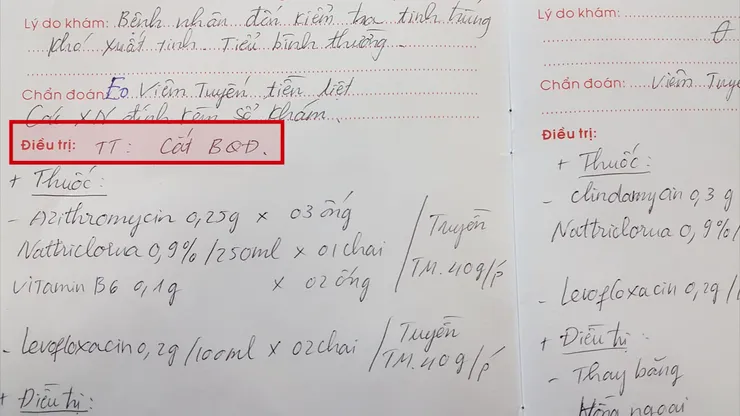 Lý do khám: Bệnh nhân đến kiểm tra tinh trùng
Khó xuất tinh. Tiểu bình thường.
Chẩn đoán: Eo Viêm Tuyến tiền liệt
Các XN đính kèm sổ khám.
Điều trị: TT: Cắt BQĐ.
+ Thuốc:
- Azithromycin 0,25g x 03 ống
Nattriclorua 0,9% /250ml x 01 chai
Vitamin B6 0,1g x 02 ống
Truyền
TM. 40g/p
- Levofloxacin 0,2g /100ml x 02 chai
Truyền
TM. 40g/p
+ Điều trị:
Lý do khám:
Chẩn đoán: Viêm Tuy
+ Thuốc:
- Clindamycin 0,3 g
Nattriclorua 0,9%/
- Levofloxacin 0,2g/
+ Điều trị:
- Thay băng
Hồng ngoại